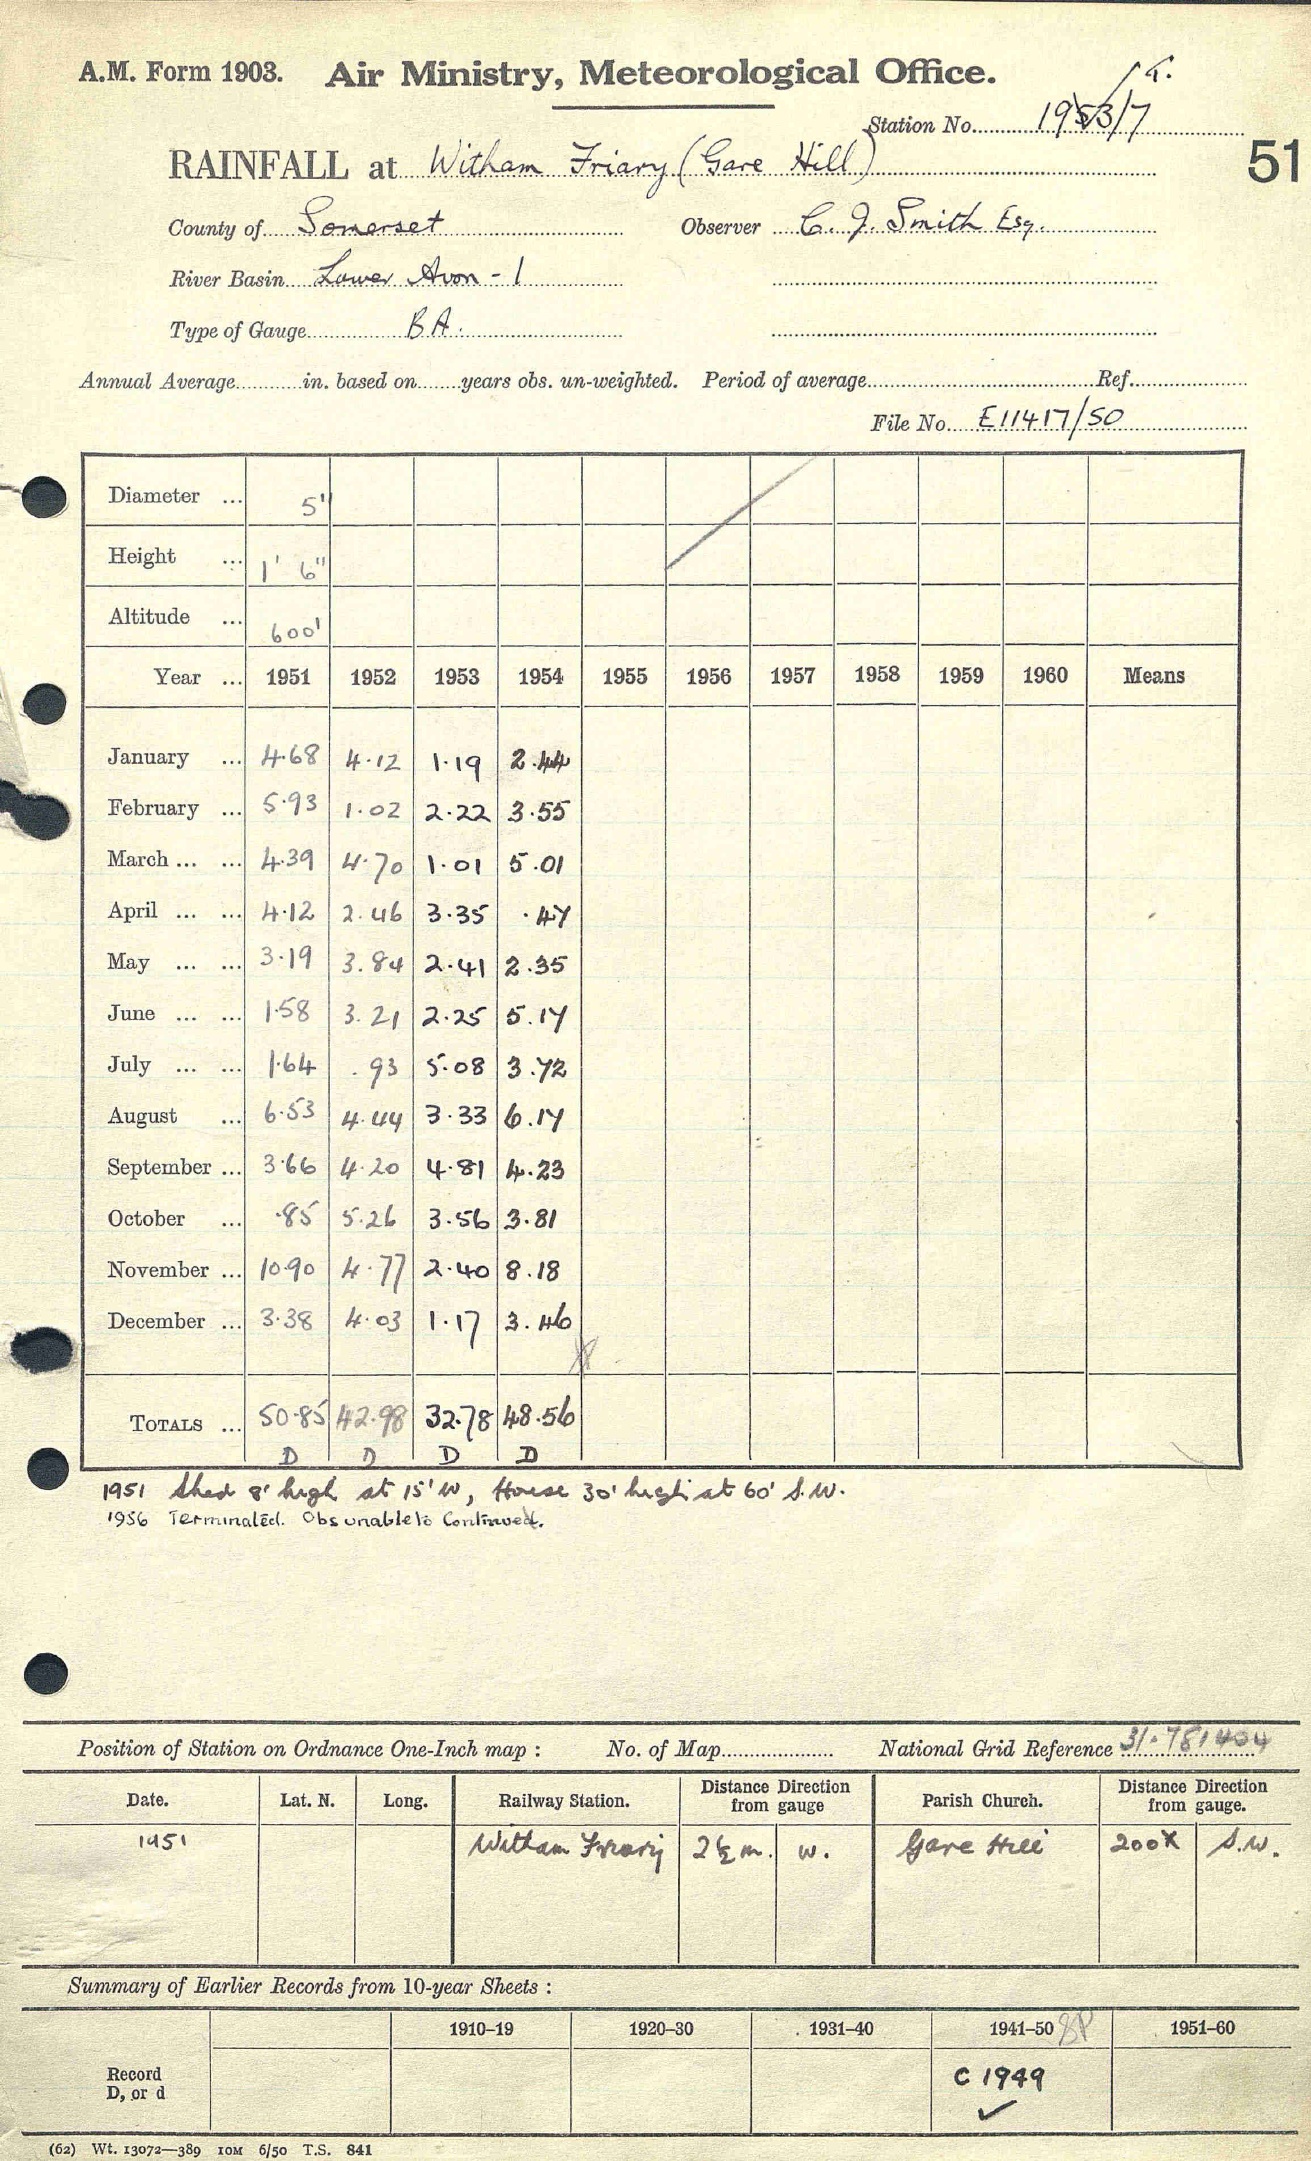 A.M. Form 1903. Air Ministry, Meteorological Office.
Station No. 1953/7
RAINFALL at Witham Friary (Gare Hill)
51
County of Somerset Observer C. J. Smith Esq.
River Basin Lower Avon - 1
Type of Gauge B A.
Annual Average in. based on years obs. un-weighted. Period of average Ref.
File No. E11417/50
Diameter ... 5"
Height ... 1' 6"
Altitude ... 600'
Year ... 1951 1952 1953 1954 1955 1956 1957 1958 1959 1960 Means
January ... 4.68 4.12 1.19 2.44
February ... 5.93 1.02 2.22 3.55
March ... ... 4.39 4.70 1.01 5.01
April ... ... 4.12 2.46 3.35 .47
May ... ... 3.19 3.84 2.41 2.35
June ... ... 1.58 3.21 2.25 5.17
July ... ... 1.64 .93 5.08 3.72
August ... 6.53 4.44 3.33 6.17
September ... 3.66 4.20 4.81 4.23
October ... .85 5.26 3.56 3.81
November ... 10.90 4.77 2.40 8.18
December ... 3.38 4.03 1.17 3.46
TOTALS ... 50.85 42.98 32.78 48.56
D D D D
1951 Shed 8' high at 15' W, House 30' high at 60' S.W.
1956 Terminated. Obs unable to Continued.
Position of Station on Ordnance One-Inch map : No. of Map National Grid Reference 31.781404
Date. Lat. N. Long. Railway Station. Distance Direction from gauge Parish Church. Distance Direction from gauge.
1951 Witham Friary 2½ m. W. Gare Hill 200x S.W.
Summary of Earlier Records from 10-year Sheets :
1910–19 1920–30 1931–40 1941–50 1951–60
Record D, or d
C 1949
(62) Wt. 13072—389 10M 6/50 T.S. 841